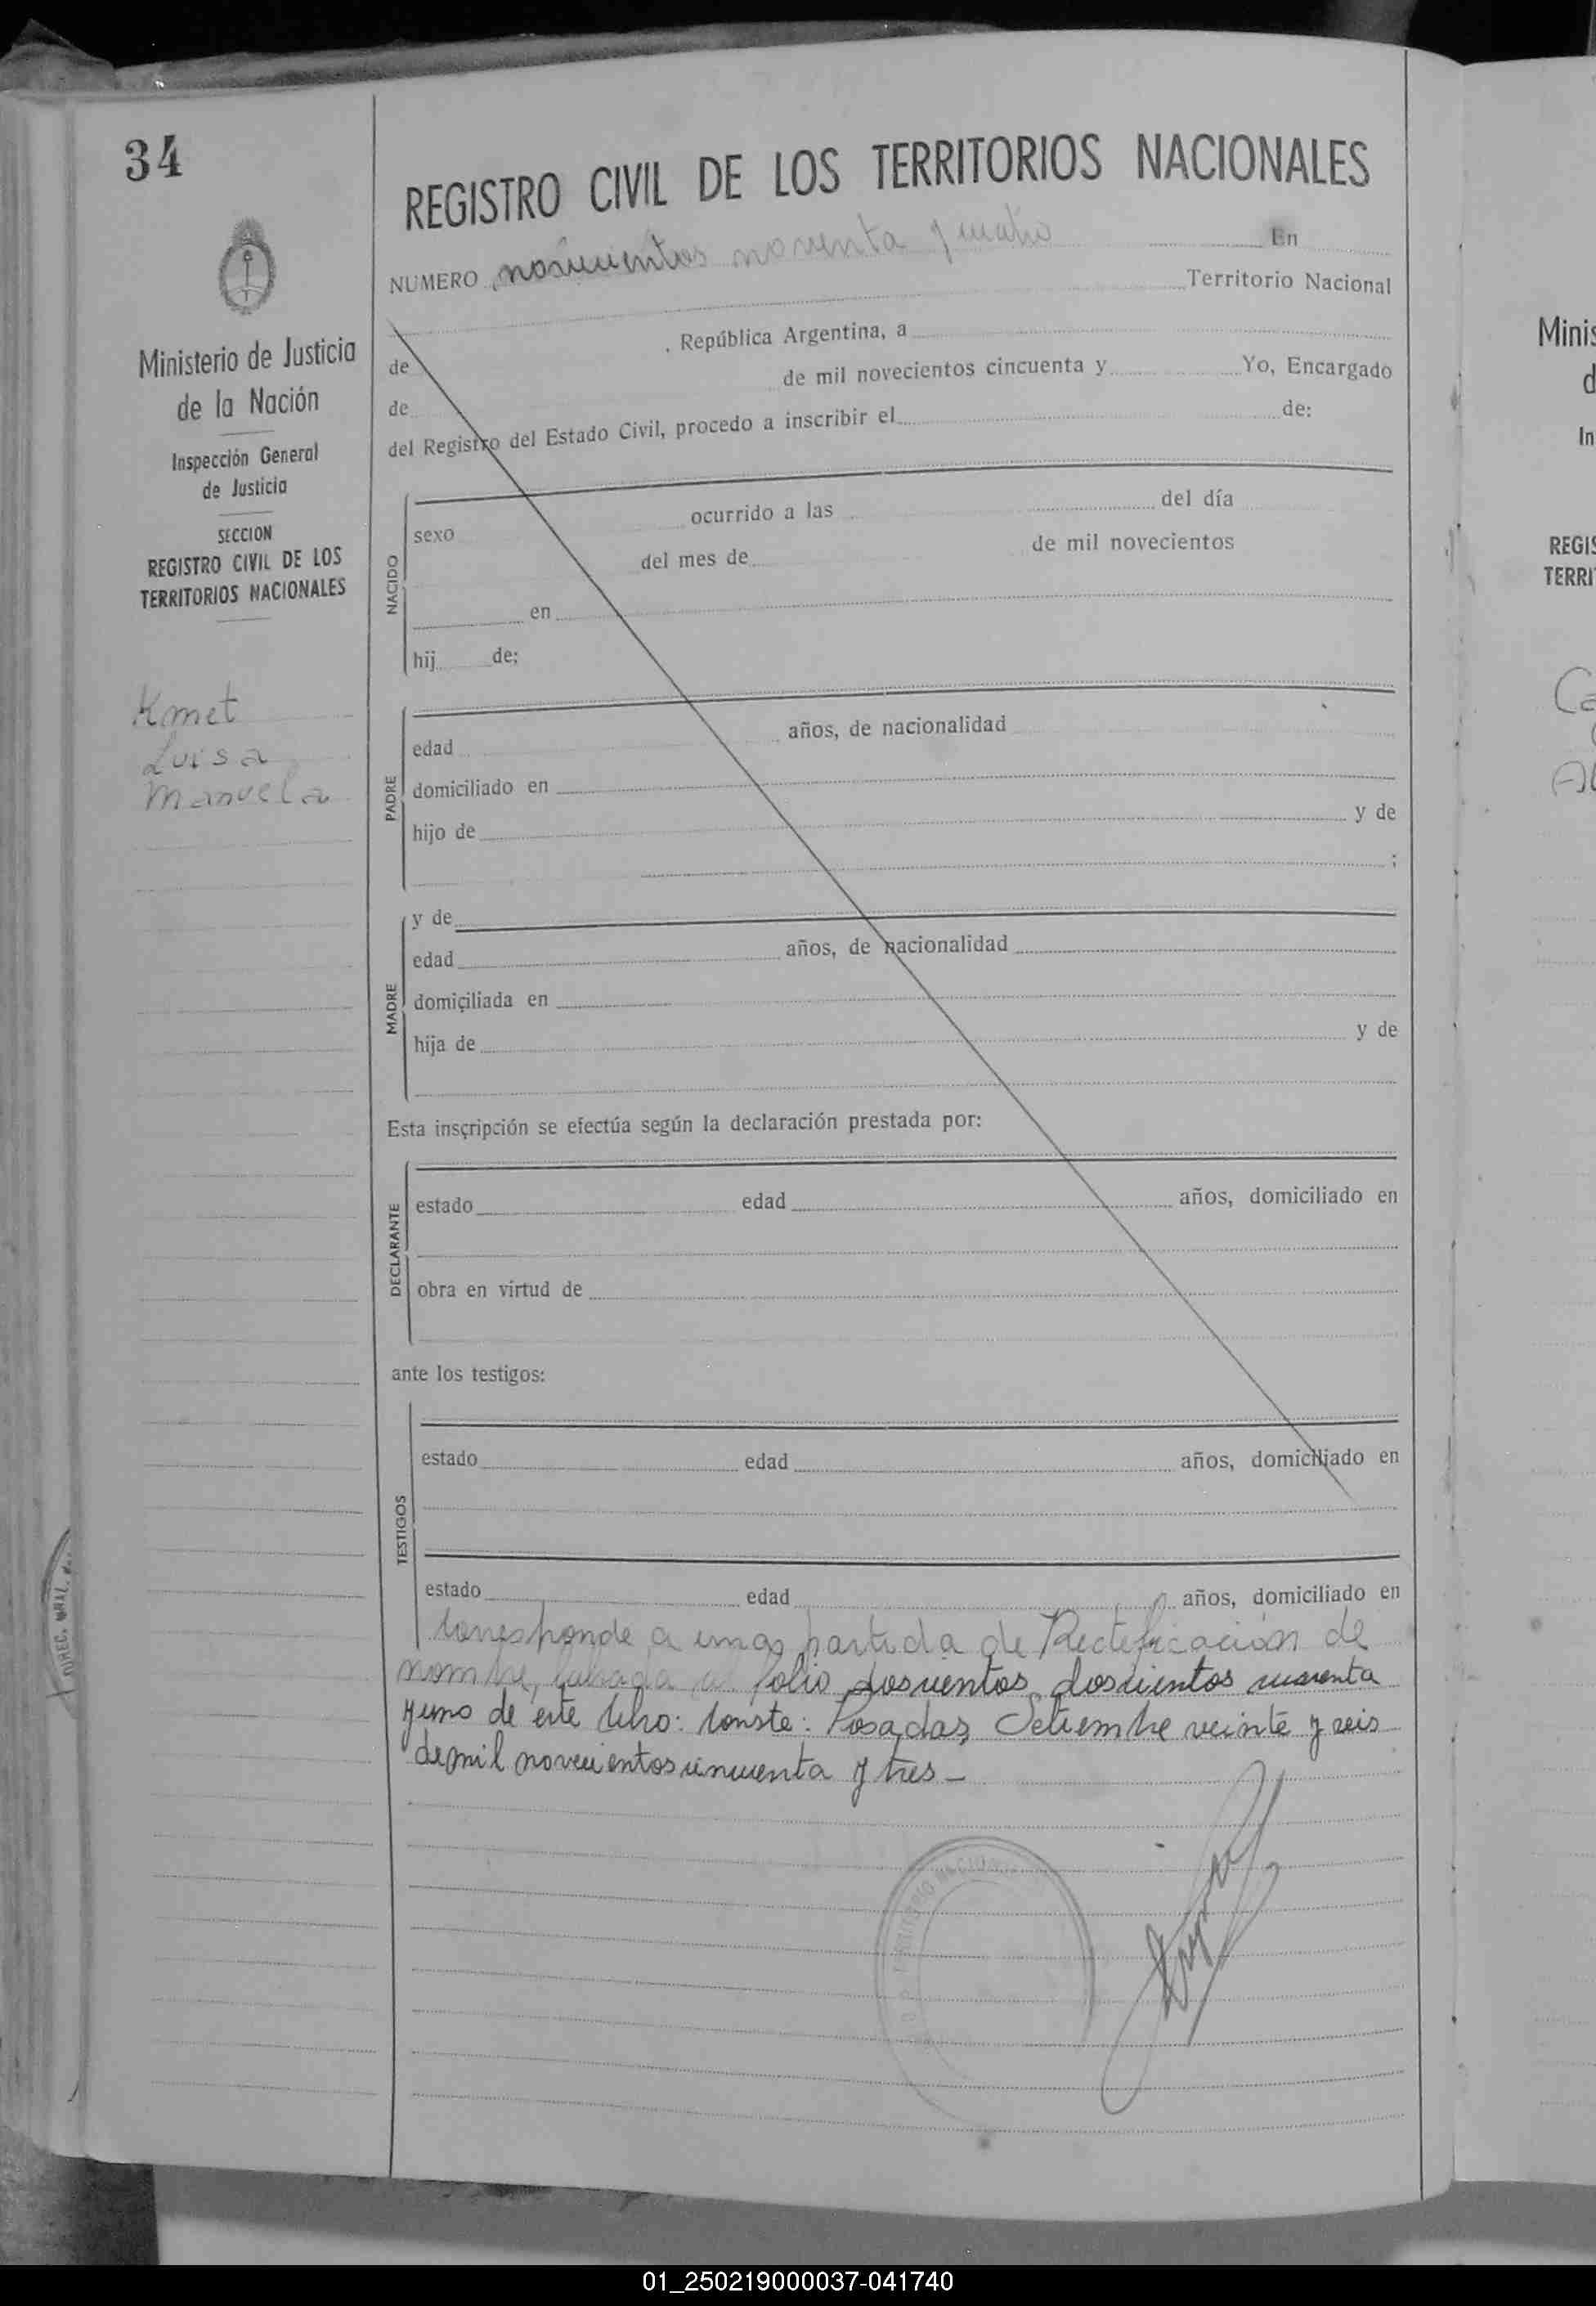 34
Ministerio de Justicia
de la Nación
Inspección General
de Justicia
SECCION
REGISTRO CIVIL DE LOS
TERRITORIOS NACIONALES
Kmet
Luisa
Manuela
REGISTRO CIVIL DE LOS TERRITORIOS NACIONALES
NUMERO novecientos noventa y cuatro En
Territorio Nacional
de , República Argentina, a
de de mil novecientos cincuenta y Yo, Encargado
del Registro del Estado Civil, procedo a inscribir el de:
NACIDO
sexo ocurrido a las del día
del mes de de mil novecientos
en
hij de;
PADRE
edad años, de nacionalidad
domiciliado en
hijo de y de
;
MADRE
y de
edad años, de nacionalidad
domiciliada en
hija de y de
Esta inscripción se efectúa según la declaración prestada por:
DECLARANTE
estado edad años, domiciliado en
obra en virtud de
ante los testigos:
TESTIGOS
estado edad años, domiciliado en
estado edad años, domiciliado en
Corresponde a una partida de Rectificación de
nombre, labrada al folio doscientos doscientos cuarenta
y uno de este libro: Conste: Posadas, Setiembre veinte y seis
de mil novecientos cincuenta y tres -
TERRITORIO NACIONAL
Minis
d
In
REGIS
TERRI
Ca
Al
01_250219000037-041740